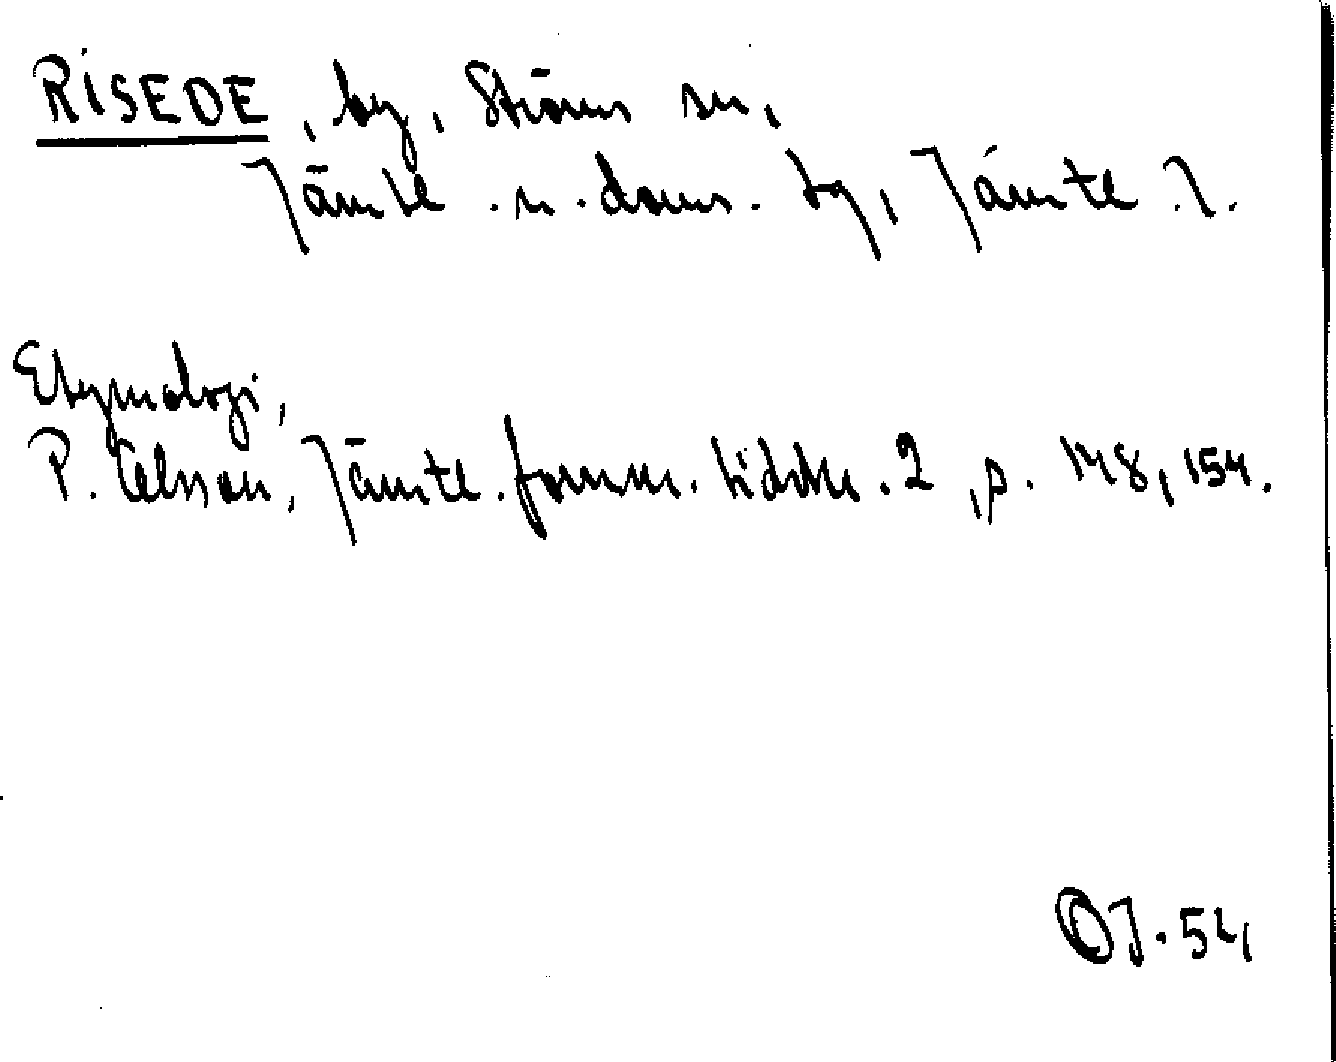 RISEDE, by, Ströms sn,
Jämtl. n. doms. tg, Jämtl. l.
Etymologi,
P. Olsson, Jämtl. fornm. tidskr. 2, p. 148, 154.
OJ. 54